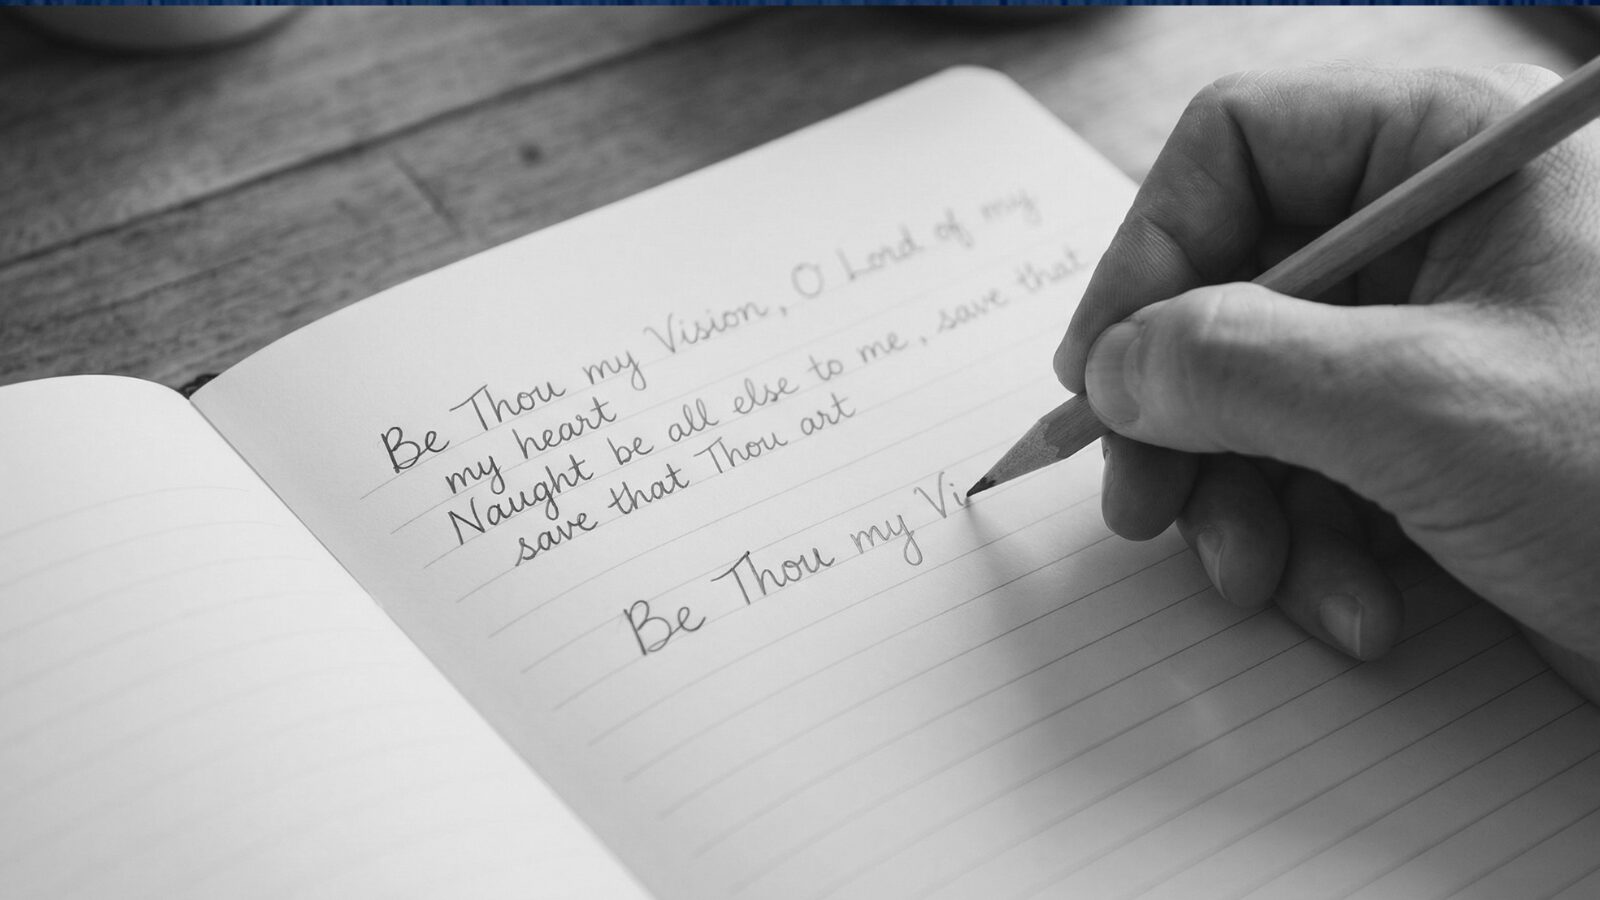 Be Thou my Vision, O Lord of my
my heart
Naught be all else to me, save that
save that Thou art
Be Thou my Vi